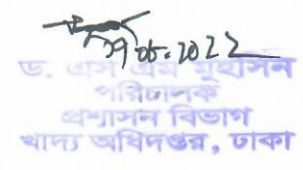 ২৭.০৮.2022
ড. এস এম মুহসিন
পরিচালক
প্রশাসন বিভাগ
খাদ্য অধিদপ্তর, ঢাকা